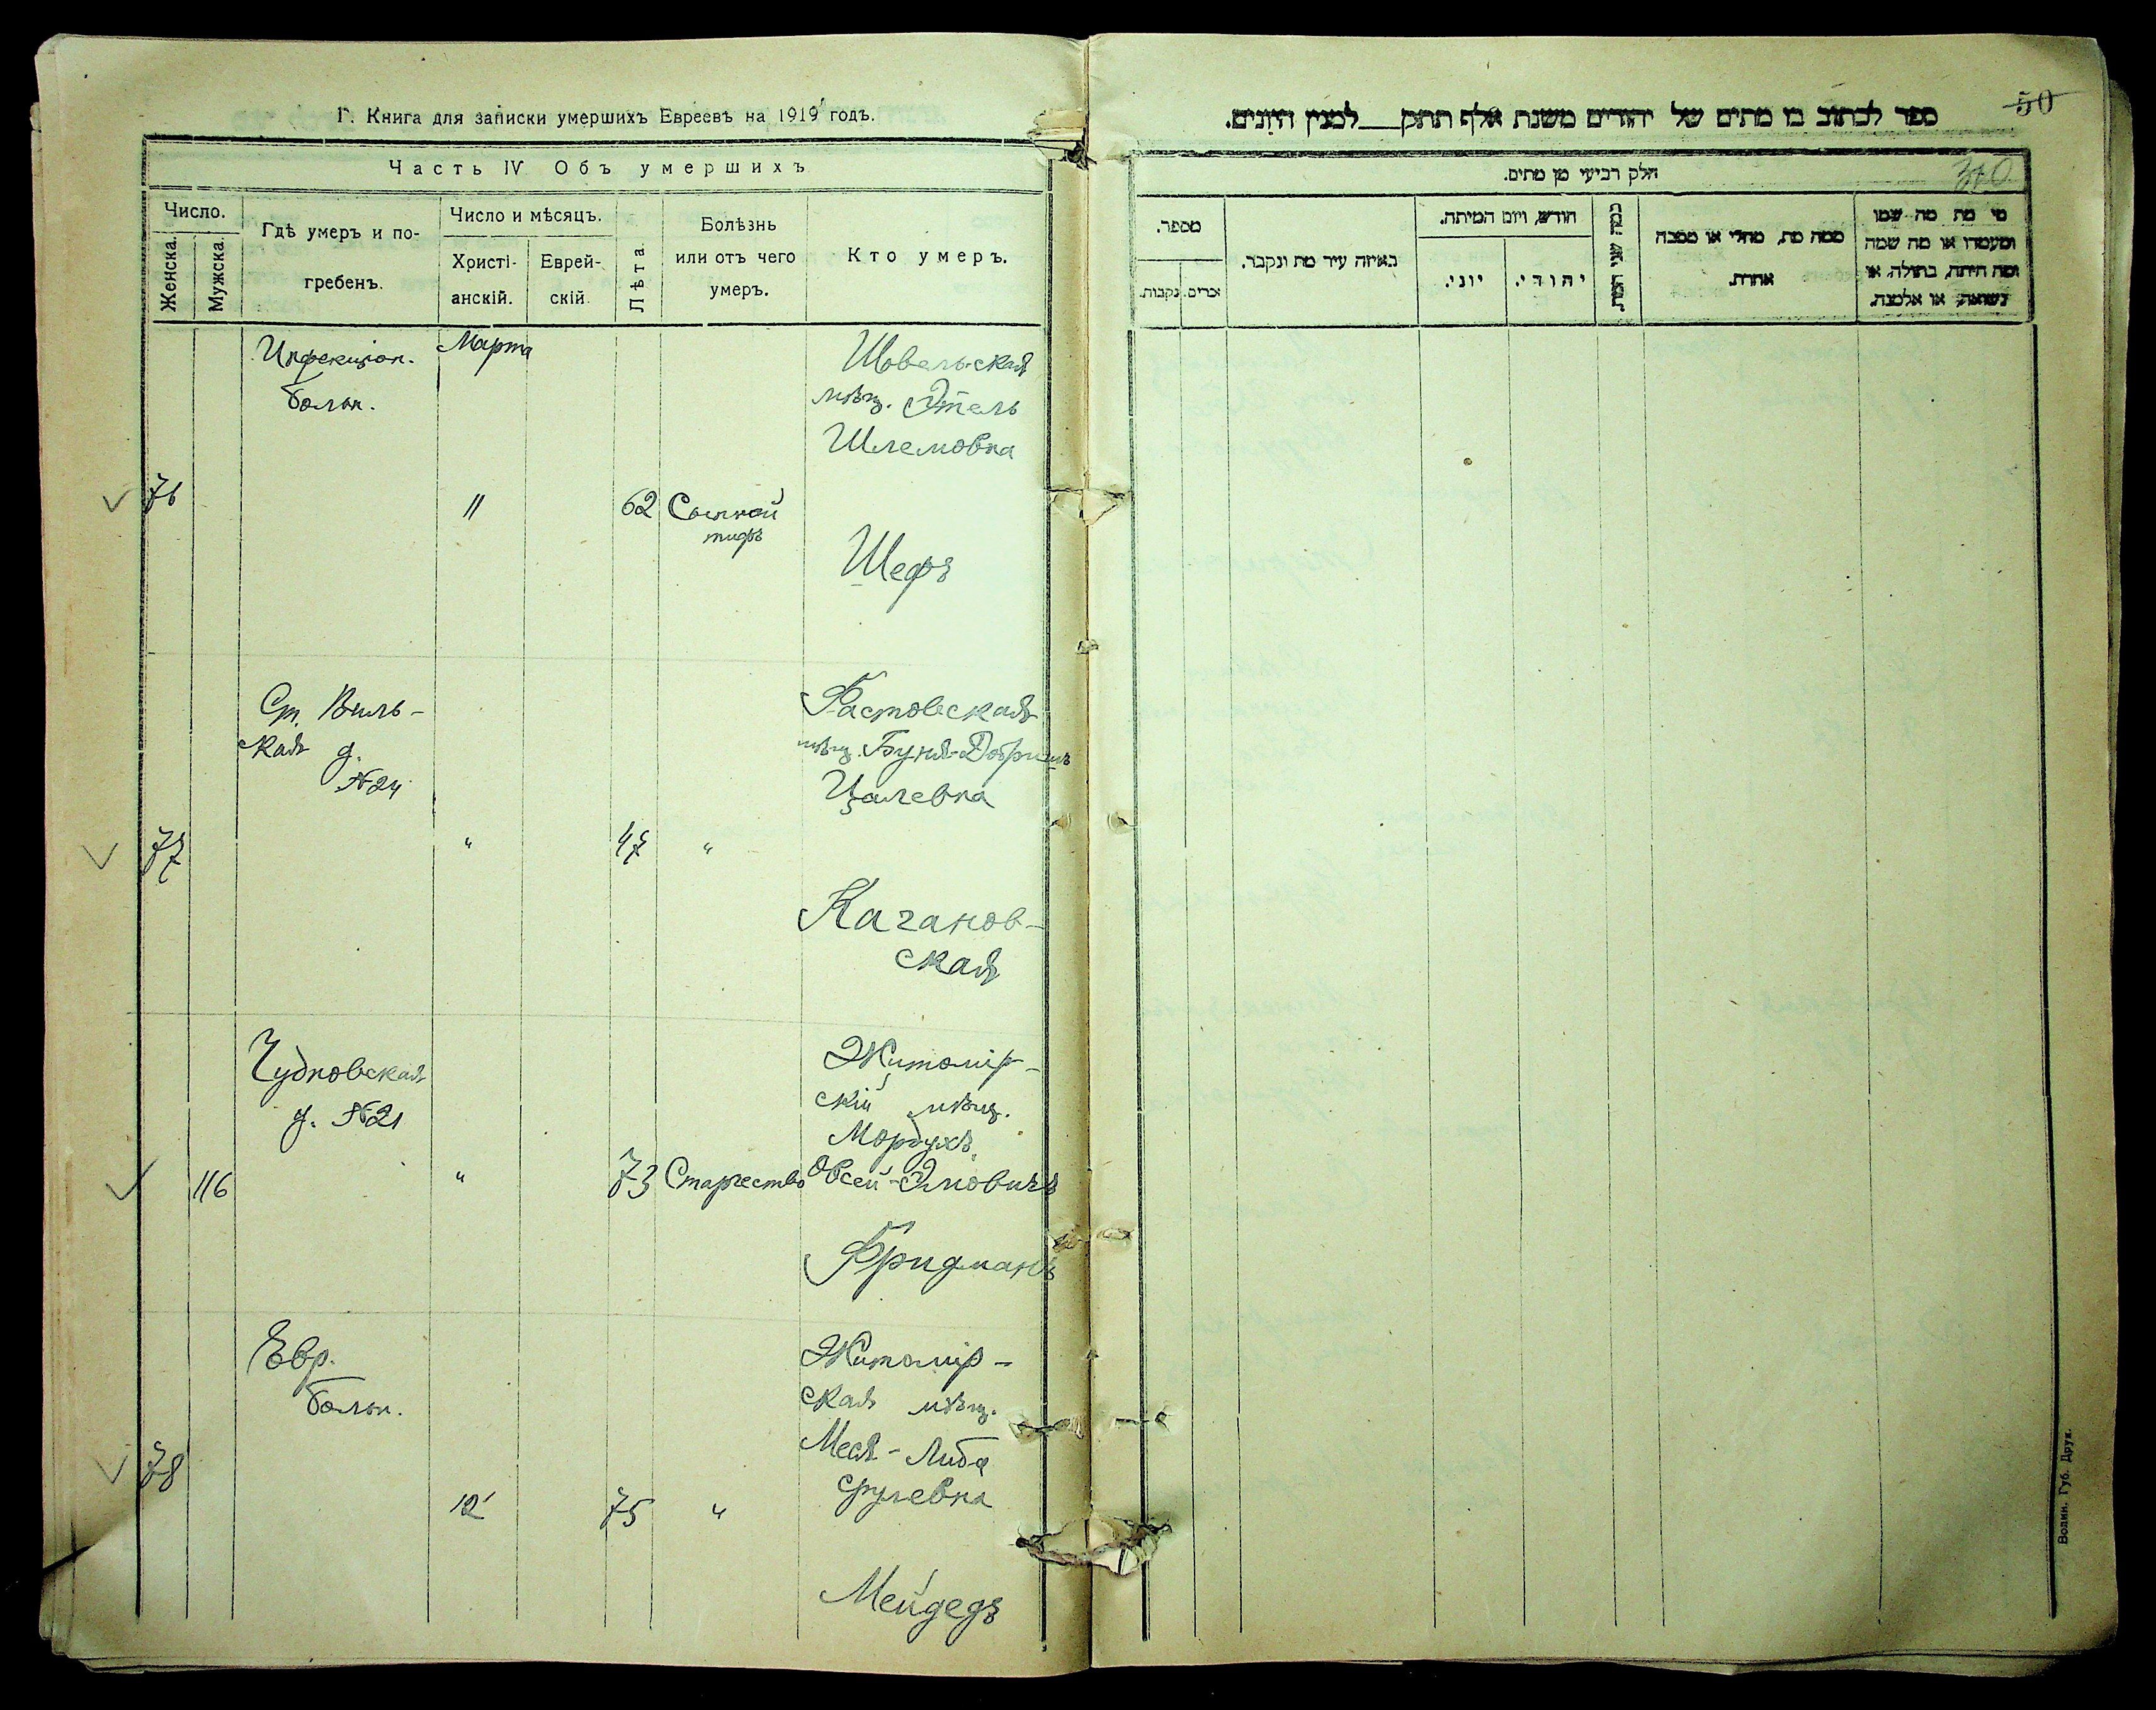 Г. Книга для записки умершихъ Евреевъ на 1919 годъ.
Часть IV Объ умершихъ
Число.
Женска.
Мужска.
Гдѣ умеръ и по-
гребенъ.
Число и мѣсяцъ.
Христі-
анскій.
Еврей-
скій.
Лѣта
Болѣзнь
или отъ чего
умеръ.
Кто умеръ.
Инфекціон.
больн.
Марта
Шовельская
мѣщ. Этель
Шлемовна
76
11
62
Сыпной
тифъ
Шефъ
Ср. Виль-
ская д.
№24
Фастовская
мѣщ. Буня-Добришъ
Цалевна
77
"
47
"
Качанов-
ская
Чудновская
д. №21
Житомір-
скій мѣщ.
Мордухъ
116
"
73
Старчество
Овсей-Элювичъ
Фридманъ
Евр.
больн.
Житомір-
ская мѣщ.
Меся-Либа
Срулевна
78
12
75
"
Мейдедъ
50
ספר לכתוב בו מתים של יהודים משנת אלף תתק___למנין היונים.
310
חלק רביעי מן מתים.
מספר.
נקבות.
זכרים.
באיזה עיר מת ונקבר.
חודש, ויום המיתה.
יוני.
יהודי.
כמה שני המת.
ממה מת, מחלי או מסבה
אחרת.
מי מת מה שמו
ומעמדו או מה שמה
ומה היתה, בתולה, או
נשואה, או אלמנה.
Волин. Губ. Друк.